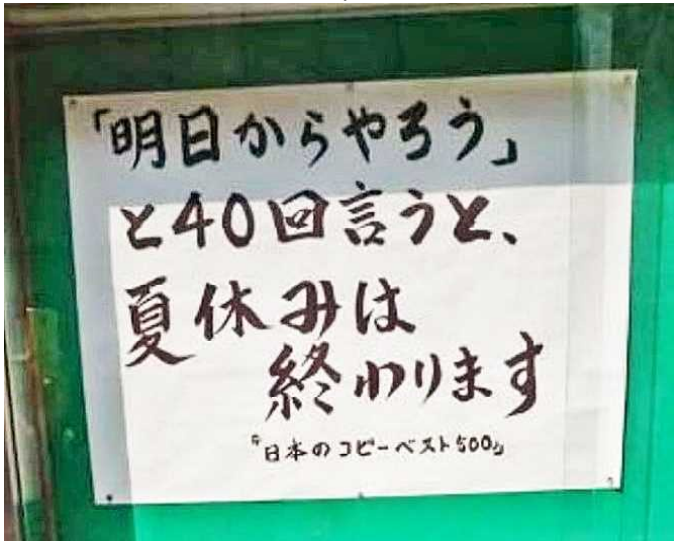 「明日からやろう」
と40回言うと、
夏休みは
終わります
『日本のコピーベスト500』